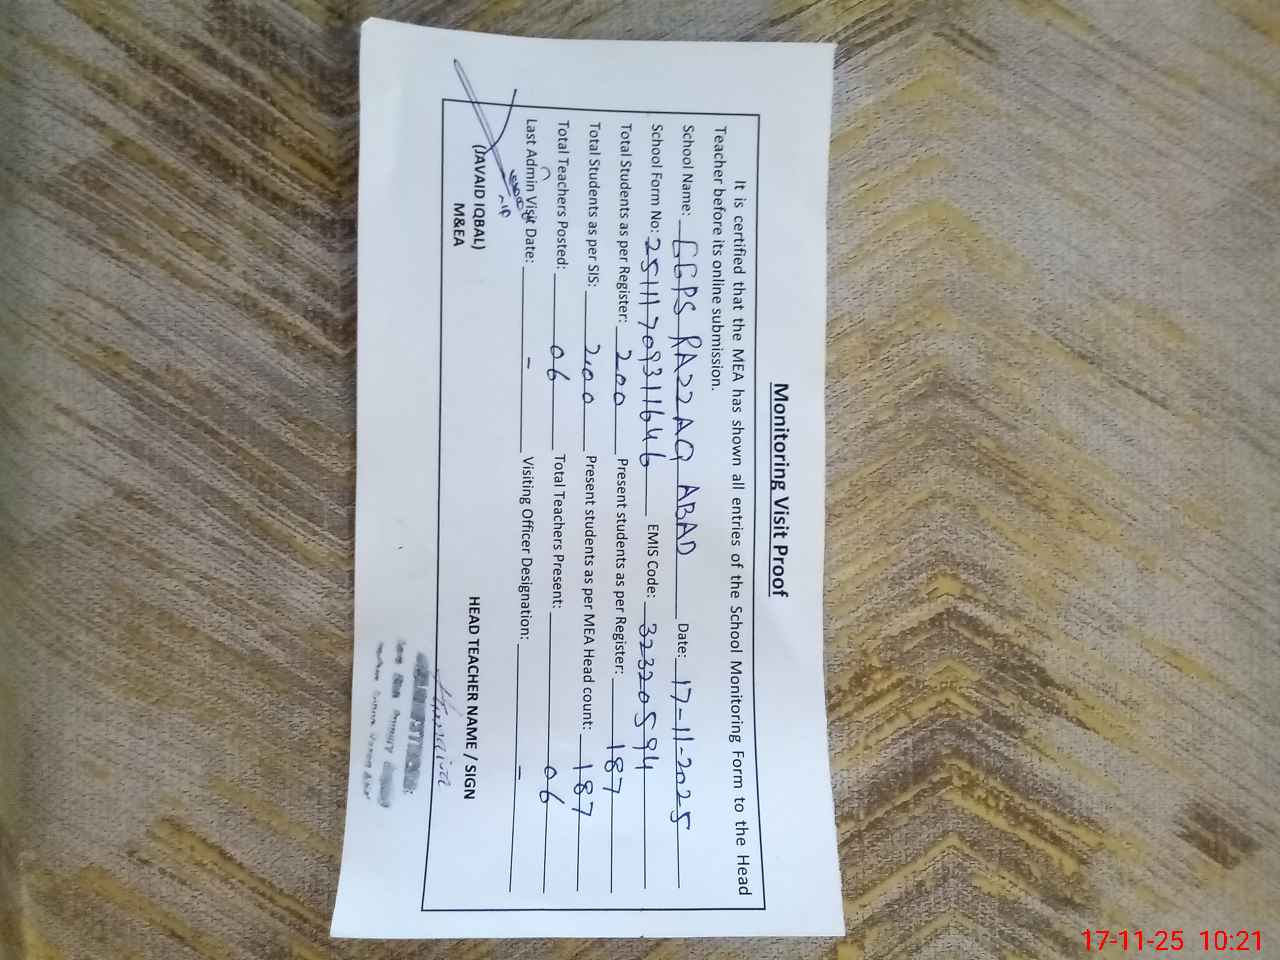 Monitoring Visit Proof
It is certified that the MEA has shown all entries of the School Monitoring Form to the Head
Teacher before its online submission.
School Name: GGPS RAZZAQ ABAD Date: 17-11-2025
School Form No: 25111709311646 EMIS Code: 32320594
Total Students as per Register: 200 Present students as per Register: 187
Total Students as per SIS: 200 Present students as per MEA Head count: 187
Total Teachers Posted: 06 Total Teachers Present: 06
Last Admin Visit Date: - Visiting Officer Designation: -
(JAVAID IQBAL) HEAD TEACHER NAME / SIGN
M&EA
17-11-25 10:21